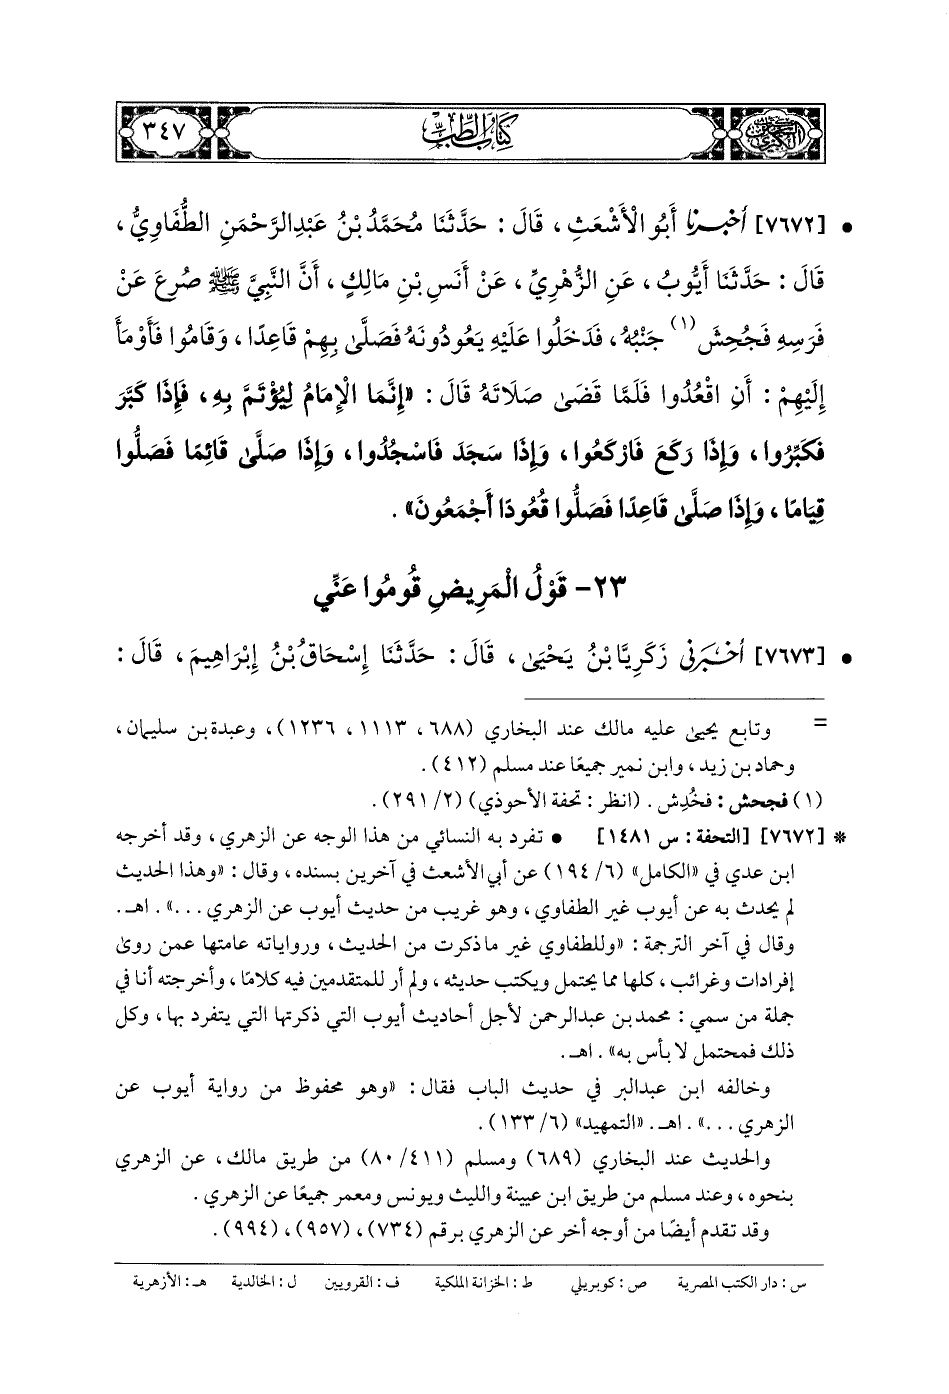 السنن الكبرى
كتاب الطب
٣٤٧
• [٧٦٧٢] أخبرنا أَبُو الْأَشْعَثِ، قَالَ: حَدَّثَنَا مُحَمَّدُ بْنُ عَبْدِ الرَّحْمَنِ الطُّفَاوِيُّ،
قَالَ: حَدَّثَنَا أَيُّوبُ، عَنِ الزُّهْرِيِّ، عَنْ أَنَسِ بْنِ مَالِكٍ، أَنَّ النَّبِيَّ ﷺ صُرِعَ عَنْ
فَرَسِهِ فَجُحِشَ (١) جَنْبُهُ، فَدَخَلُوا عَلَيْهِ يَعُودُونَهُ فَصَلَّى بِهِمْ قَاعِدًا، وَقَامُوا فَأَوْمَأَ
إِلَيْهِمْ: أَنِ اقْعُدُوا فَلَمَّا قَضَى صَلَاتَهُ قَالَ: «إِنَّمَا الْإِمَامُ لِيُؤْتَمَّ بِهِ، فَإِذَا كَبَّرَ
فَكَبِّرُوا، وَإِذَا رَكَعَ فَارْكَعُوا، وَإِذَا سَجَدَ فَاسْجُدُوا، وَإِذَا صَلَّى قَائِمًا فَصَلُّوا
قِيَامًا، وَإِذَا صَلَّى قَاعِدًا فَصَلُّوا قُعُودًا أَجْمَعُونَ».
٢٣- قَوْلُ الْمَرِيضِ قُومُوا عَنِّي
• [٧٦٧٣] أخبرني زَكَرِيَّا بْنُ يَحْيَى، قَالَ: حَدَّثَنَا إِسْحَاقُ بْنُ إِبْرَاهِيمَ، قَالَ:
= وتابع يحيى عليه مالك عند البخاري (٦٨٨، ١١١٣، ١٢٣٦)، وعبدة بن سليمان،
وحماد بن زيد، وابن نمير جميعًا عند مسلم (٤١٢).
(١) فجحش: فخُدِش. (انظر: تحفة الأحوذي) (٢/ ٢٩١).
* [٧٦٧٢] [التحفة: س ١٤٨١] • تفرد به النسائي من هذا الوجه عن الزهري، وقد أخرجه
ابن عدي في «الكامل» (٦/ ١٩٤) عن أبي الأشعث في آخرين بسنده، وقال: «وهذا الحديث
لم يحدث به عن أيوب غير الطفاوي، وهو غريب من حديث أيوب عن الزهري...». اهـ.
وقال في آخر الترجمة: «وللطفاوي غير ما ذكرت من الحديث، ورواياته عامتها عمن روى
إفرادات وغرائب، كلها مما يحتمل ويكتب حديثه، ولم أر للمتقدمين فيه كلامًا، وأخرجته أنا في
جملة من سمي: محمد بن عبدالرحمن لأجل أحاديث أيوب التي ذكرتها التي يتفرد بها، وكل
ذلك فمحتمل لا بأس به». اهـ.
وخالفه ابن عبدالبر في حديث الباب فقال: «وهو محفوظ من رواية أيوب عن
الزهري...». اهـ. «التمهيد» (٦/ ١٣٣).
والحديث عند البخاري (٦٨٩) ومسلم (٤١١/ ٨٠) من طريق مالك، عن الزهري
بنحوه، وعند مسلم من طريق ابن عيينة والليث ويونس ومعمر جميعًا عن الزهري.
وقد تقدم أيضًا من أوجه أخر عن الزهري برقم (٧٣٤)، (٩٥٧)، (٩٩٤).
س: دار الكتب المصرية ص: كوبريلي ط: الخزانة الملكية ف: القرويين ل: الخالدية هـ: الأزهرية